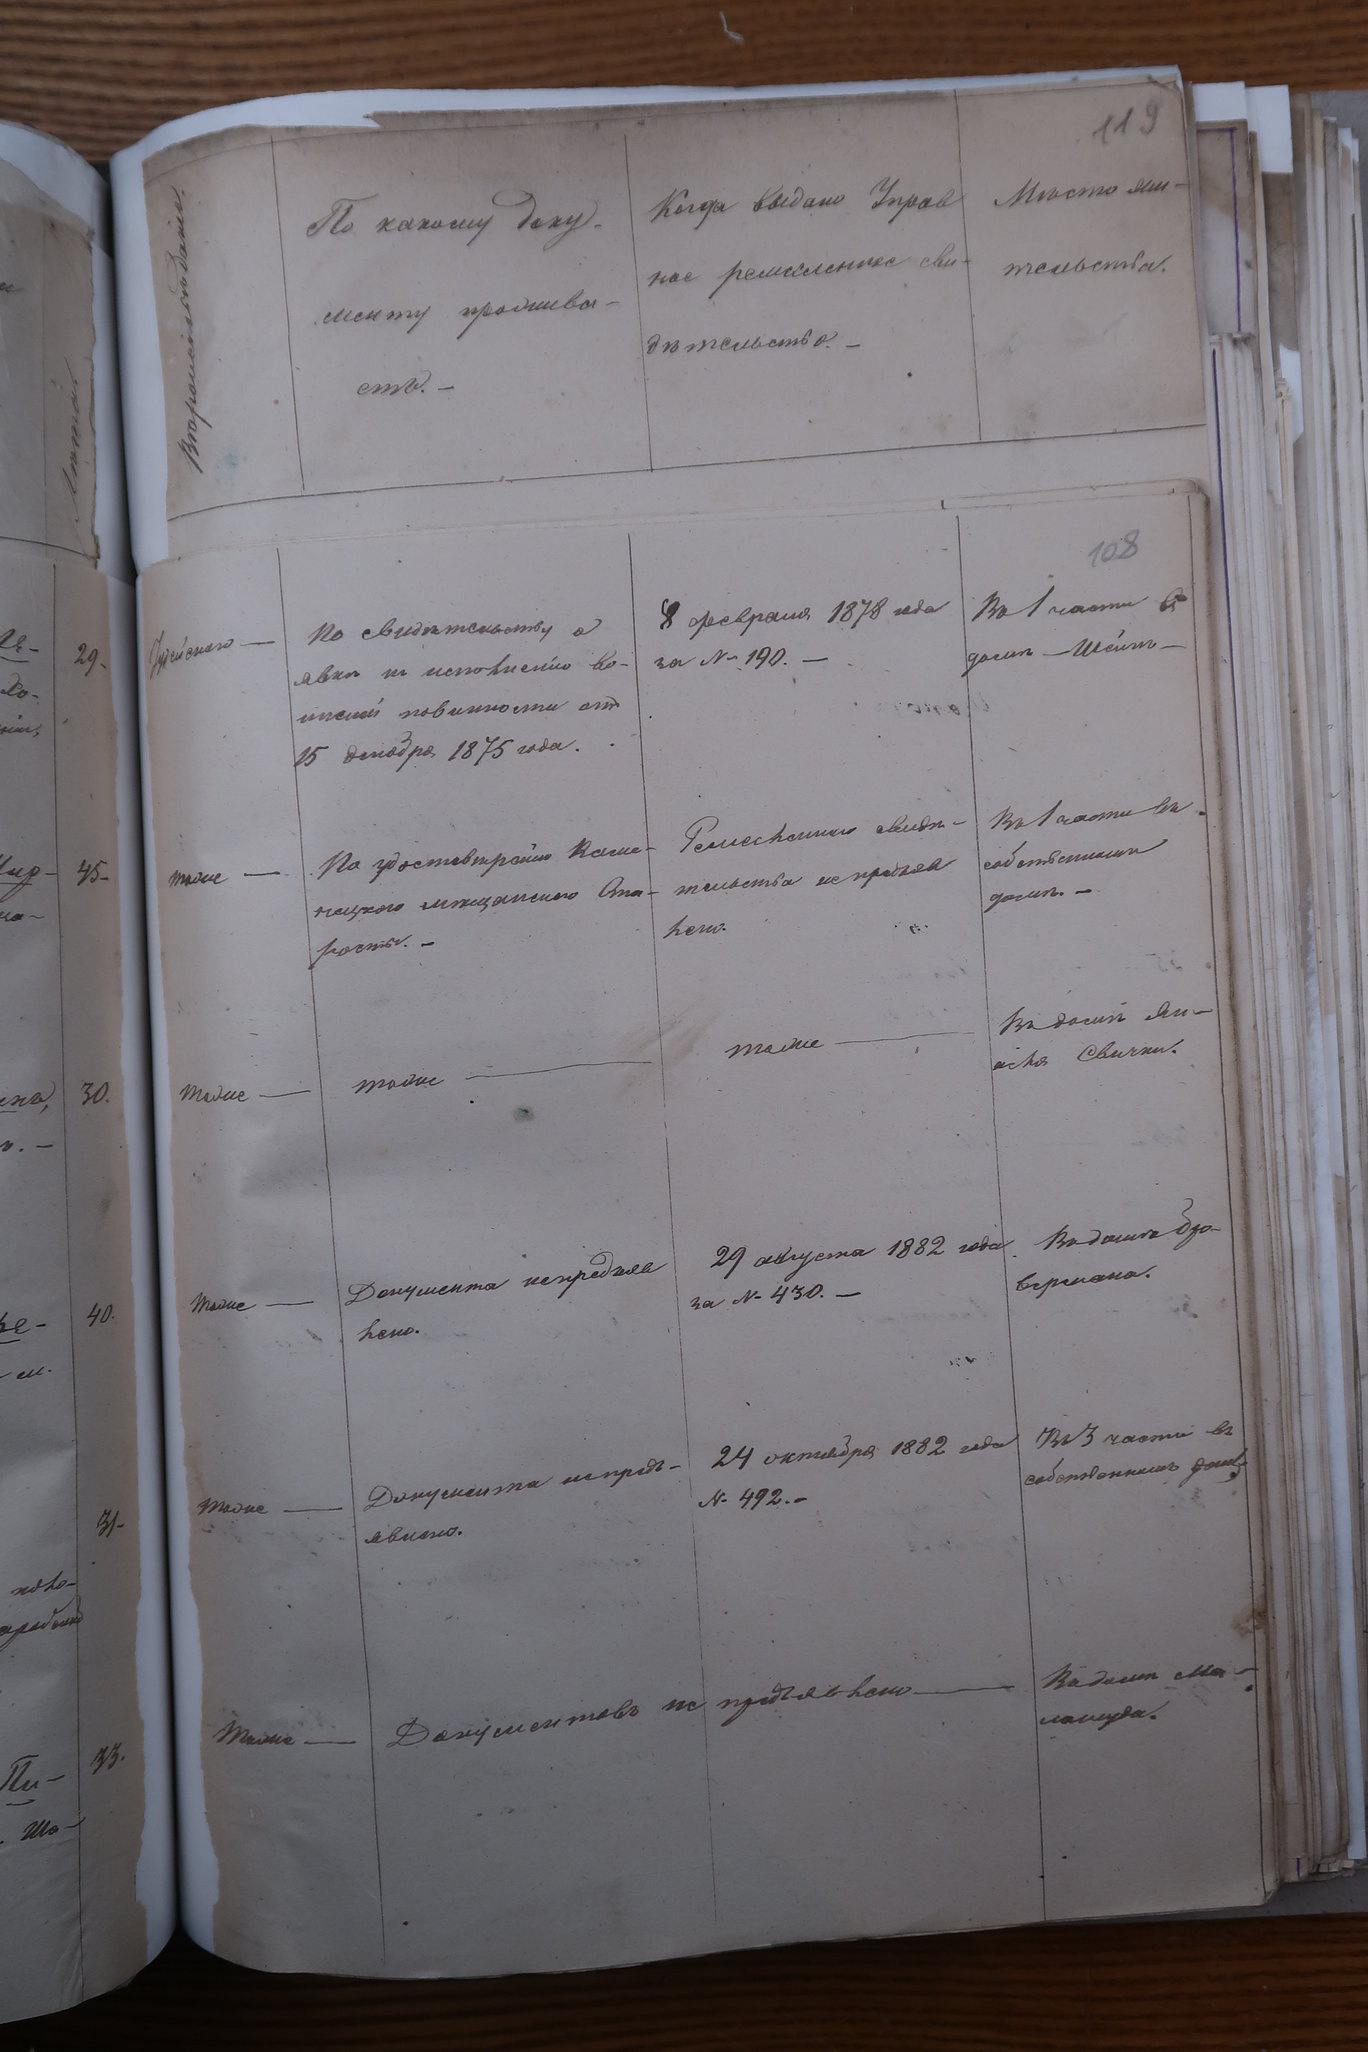 119
Вѣроисповѣданіе.
По какому доку-
менту прожива-
етъ. -
Когда выдано Управ
ное ремесленное сви-
дѣтельство. -
Мѣсто жи-
тельства.
Лѣта
108
29.
Іудейскаго —
По свидѣтельству о
явкѣ къ исполненію во-
инской повинности отъ
15 декабря 1875 года.
8 февраля 1878 года
за № 190. —
Въ 1 части въ
домѣ —
45-
тоже —
По удостовѣренію Каме-
нецкого мѣщанского Ста-
росты. -
Ремесленного свидѣ-
тельства не предъяв
лено.
Въ 1 части въ
собственномъ
домѣ. -
30.
тоже —
тоже —
тоже —
Въ домѣ
Свички.
40.
тоже —
Документа не предъяв
лено.
29 августа 1882 года
за № 430. —
Въ домѣ
вермана.
31-
тоже —
Документа не предъ-
явлено.
24 октября 1882 года
№ 492. -
Въ 3 части въ
собственномъ домѣ
33.
тоже —
Документовъ не предъявлено —
Въ домѣ Ма-